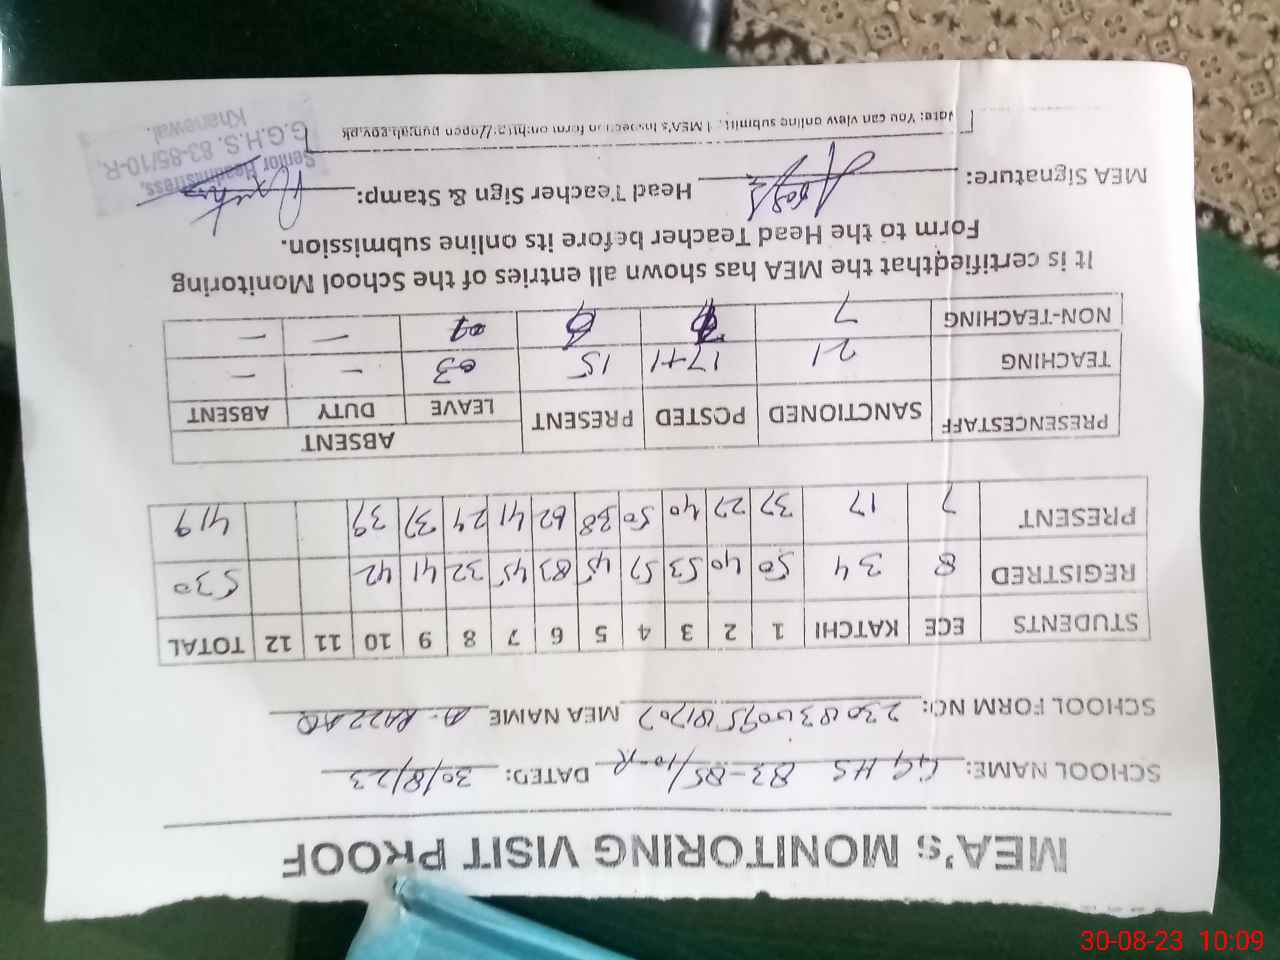 MEA's MONITORING VISIT PROOF
SCHOOL NAME: GGHS 83-85/10-R DATED: 30/8/23
SCHOOL FORM NO: MEA NAME A. RAZZAQ
STUDENTS ECE KATCHI 1 2 3 4 5 6 7 8 9 10 11 12 TOTAL
REGISTRED 8 34 50 40 53 57 45 83 45 32 41 42 530
PRESENT 7 17 37 27 40 50 38 62 41 24 37 39 419
PRESENCESTAFF SANCTIONED POSTED PRESENT ABSENT
LEAVE DUTY ABSENT
TEACHING 21 17+1 15 03 - -
NON-TEACHING 7 - -
It is certifiedthat the MEA has shown all entries of the School Monitoring
Form to the Head Teacher before its online submission.
MEA Signature: Head Teacher Sign & Stamp:
Senior Headmistress,
G.G.H.S. 83-85/10-R,
Khanewal.
You can view online MEA's Inspection form on:
30-08-23 10:09